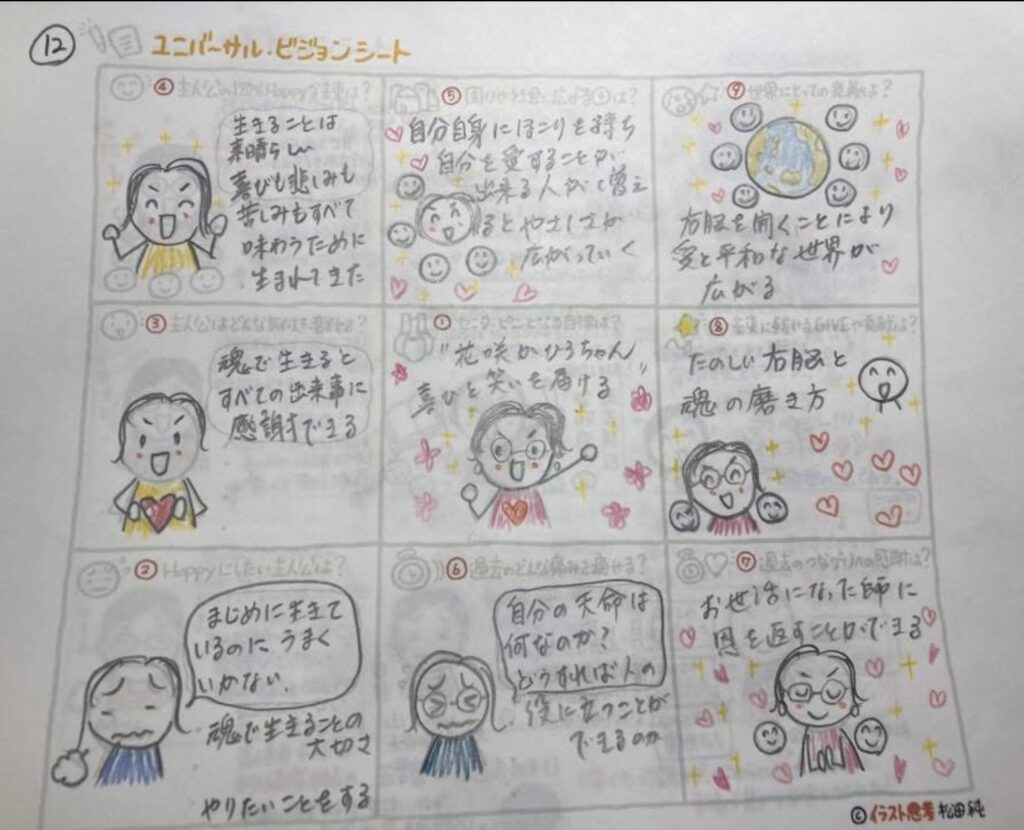 12
ユニバーサル・ビジョンシート
④主人公の120%Happyな未来は?
生きることは
素晴らしい
喜びも悲しみも
苦しみもすべて
味わうために
生まれてきた
⑤周りや社会に広がる④は?
自分自身にほこりを持ち
自分を愛することが
出来る人がて増え
るとやさしさが
広がっていく
⑨世界にとっての意義は?
右脳を開くことにより
愛と平和な世界が
広がる
③主人公はどんな気付きを得た?
魂で生きると
すべての出来事に
感謝すできる
①センターピンとなる自信は?
"花咲かひろちゃん"
喜びと笑いを届ける
⑧未来に続けるGIVEや貢献は?
たのしい右脳と
魂の磨き方
②Happyにしたい主人公は?
まじめに生きて
いるのにうまく
いかない.
魂で生きることの
大切さ
やりたいことをする
⑥過去のどんな痛みを癒せる?
自分の天命は
何なのか?
どうすれば人の
役に立つことが
できるのか
⑦過去のつながりへの感謝は?
お世話になった師に
恩を返すことができる
©イラスト思考 松田純